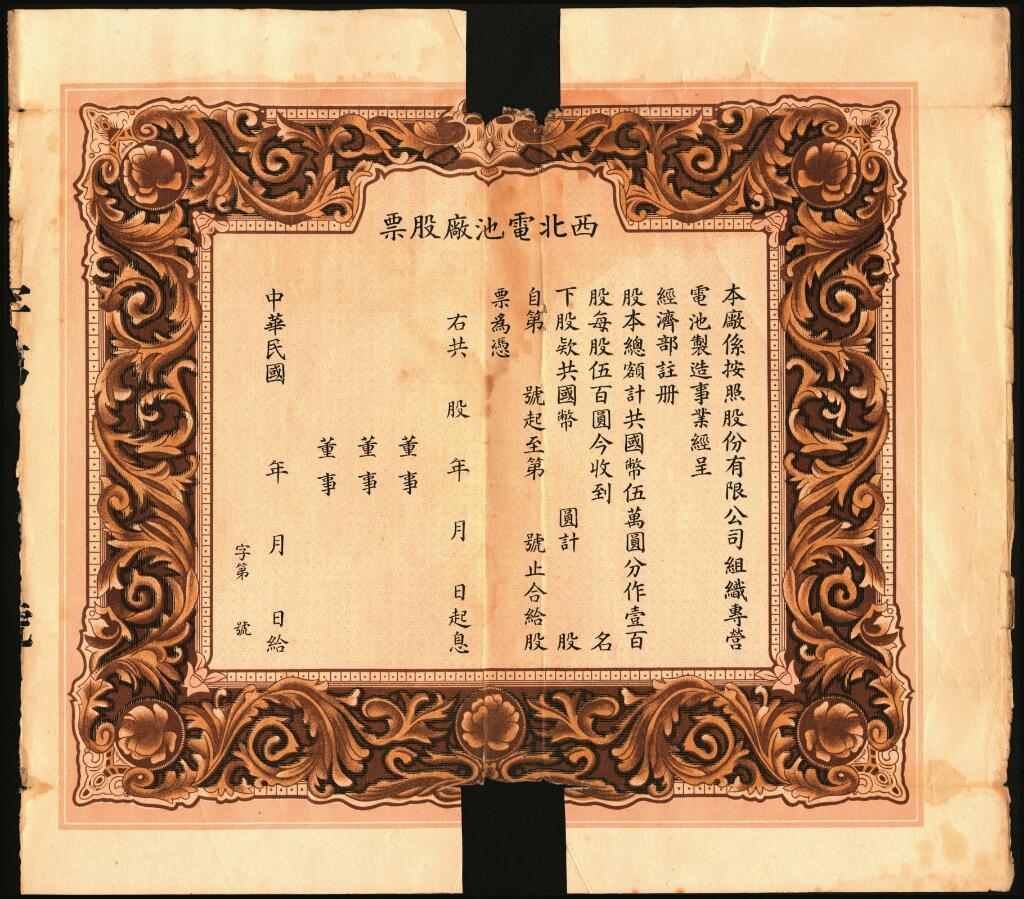 西北電池廠股票
本廠係按照股份有限公司組織專營
電池製造事業經呈
經濟部註册
股本總額計共國幣伍萬圓分作壹百
股每股伍百圓今收到 名
下股欵共國幣 圓計 股
自第 號起至第 號止合給股
票為憑
右共 股 年 月 日起息
董事
董事
董事
中華民國 年 月 日給
字第 號